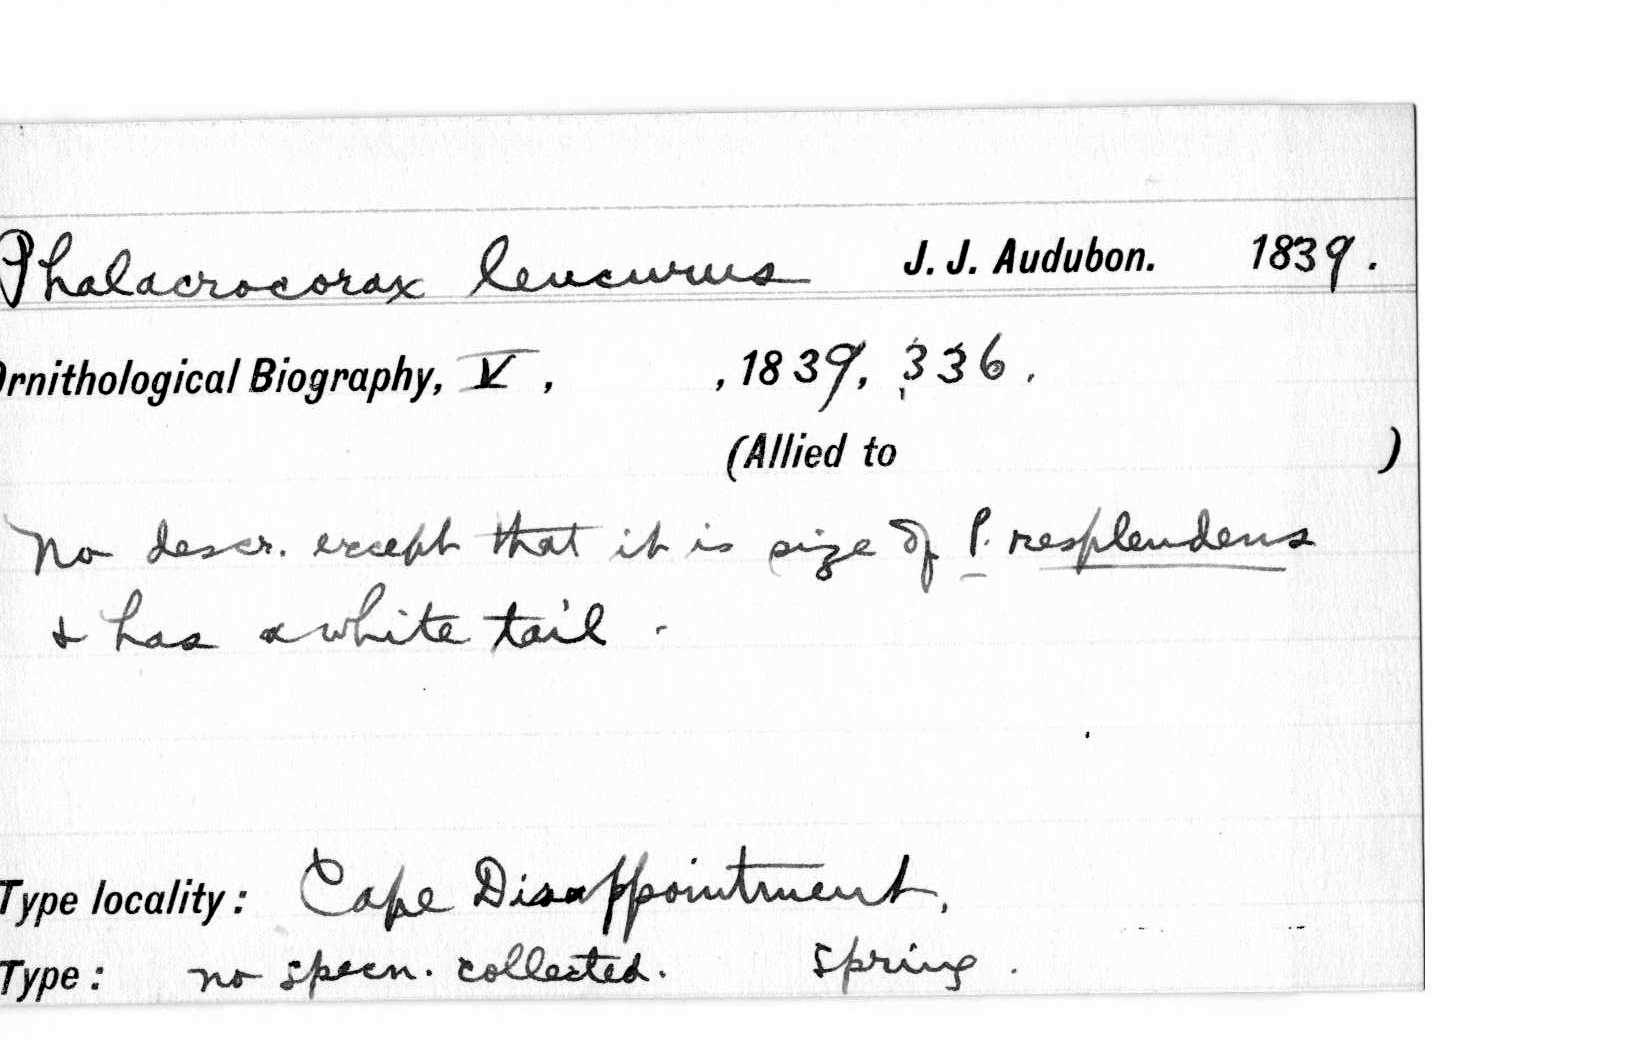 Phalacrocorax leucurus J. J. Audubon. 1839.
Ornithological Biography, V, , 1839, 336.
(Allied to )
No descr. except that it is size of P. resplendens
& has a white tail.
Type locality: Cape Disappointment,
Type: no specn. collected. Spring.